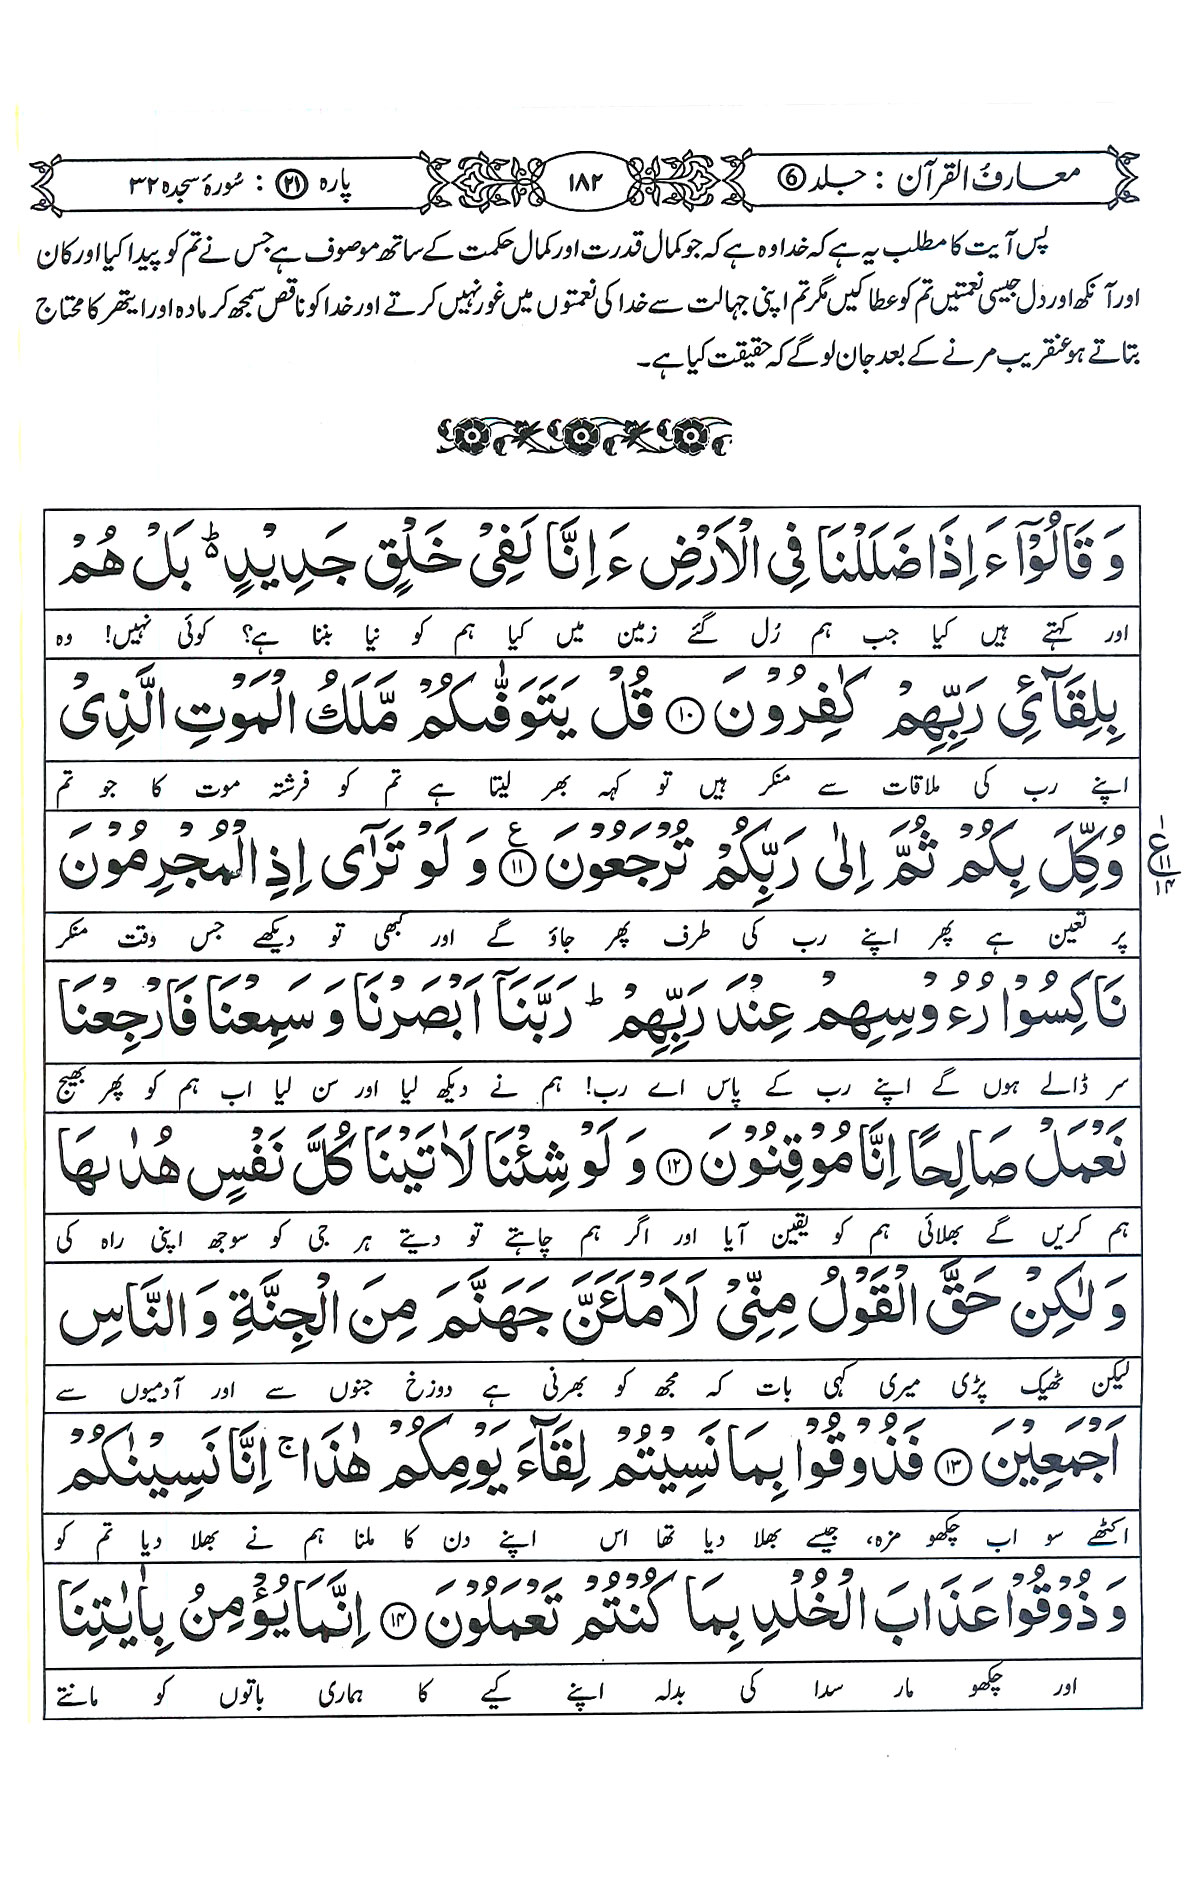 معارفُ القرآن : جلد ⑥
۱۸۲
پارہ ۲۱ : سُورۂ سجدہ ۳۲
پس آیت کا مطلب یہ ہے کہ خدا وہ ہے کہ جو کمال قدرت اور کمال حکمت کے ساتھ موصوف ہے جس نے تم کو پیدا کیا اور کان
اور آنکھ اور دل جیسی نعمتیں تم کو عطا کیں مگر تم اپنی جہالت سے خدا کی نعمتوں میں غور نہیں کرتے اور خدا کو ناقص سمجھ کر مادہ اور ایتھر کا محتاج
بتاتے ہو عنقریب مرنے کے بعد جان لو گے کہ حقیقت کیا ہے۔
وَ قَالُوْۤا ءَ اِذَا ضَلَلْنَا فِی الْاَرْضِ ءَ اِنَّا لَفِیْ خَلْقٍ جَدِیْدٍ ؕ۬ بَلْ هُمْ
اور کہتے ہیں کیا جب ہم رُل گئے زمین میں کیا ہم کو نیا بننا ہے؟ کوئی نہیں! وہ
بِلِقَآئِ رَبِّهِمْ كٰفِرُوْنَ ۱۰ قُلْ یَتَوَفّٰىكُمْ مَّلَكُ الْمَوْتِ الَّذِیْ
اپنے رب کی ملاقات سے منکر ہیں تو کہہ بھر لیتا ہے تم کو فرشتہ موت کا جو تم
وُكِّلَ بِكُمْ ثُمَّ اِلٰی رَبِّكُمْ تُرْجَعُوْنَ ۱۱ ع وَ لَوْ تَرٰۤی اِذِ الْمُجْرِمُوْنَ
پر تعین ہے پھر اپنے رب کی طرف پھر جاؤ گے اور کبھی تو دیکھے جس وقت منکر
نَاكِسُوْا رُءُوْسِهِمْ عِنْدَ رَبِّهِمْ ؕ رَبَّنَاۤ اَبْصَرْنَا وَ سَمِعْنَا فَارْجِعْنَا
سر ڈالے ہوں گے اپنے رب کے پاس اے رب! ہم نے دیکھ لیا اور سن لیا اب ہم کو پھر بھیج
نَعْمَلْ صَالِحًا اِنَّا مُوْقِنُوْنَ ۱۲ وَ لَوْ شِئْنَا لَاٰتَیْنَا كُلَّ نَفْسٍ هُدٰىهَا
ہم کریں گے بھلائی ہم کو یقین آیا اور اگر ہم چاہتے تو دیتے ہر جی کو سوجھ اپنی راہ کی
وَ لٰكِنْ حَقَّ الْقَوْلُ مِنِّیْ لَاَمْلَـَٔنَّ جَهَنَّمَ مِنَ الْجِنَّةِ وَ النَّاسِ
لیکن ٹھیک پڑی میری کہی بات کہ مجھ کو بھرنی ہے دوزخ جنوں سے اور آدمیوں سے
اَجْمَعِیْنَ ۱۳ فَذُوْقُوْا بِمَا نَسِیْتُمْ لِقَآءَ یَوْمِكُمْ هٰذَا ۚ اِنَّا نَسِیْنٰكُمْ
اکٹھے سو اب چکھو مزہ، جیسے بھلا دیا تھا اس اپنے دن کا ملنا ہم نے بھلا دیا تم کو
وَ ذُوْقُوْا عَذَابَ الْخُلْدِ بِمَا كُنْتُمْ تَعْمَلُوْنَ ۱۴ اِنَّمَا یُؤْمِنُ بِاٰیٰتِنَا
اور چکھو مار سدا کی بدلہ اپنے کیے کا ہماری باتوں کو مانتے